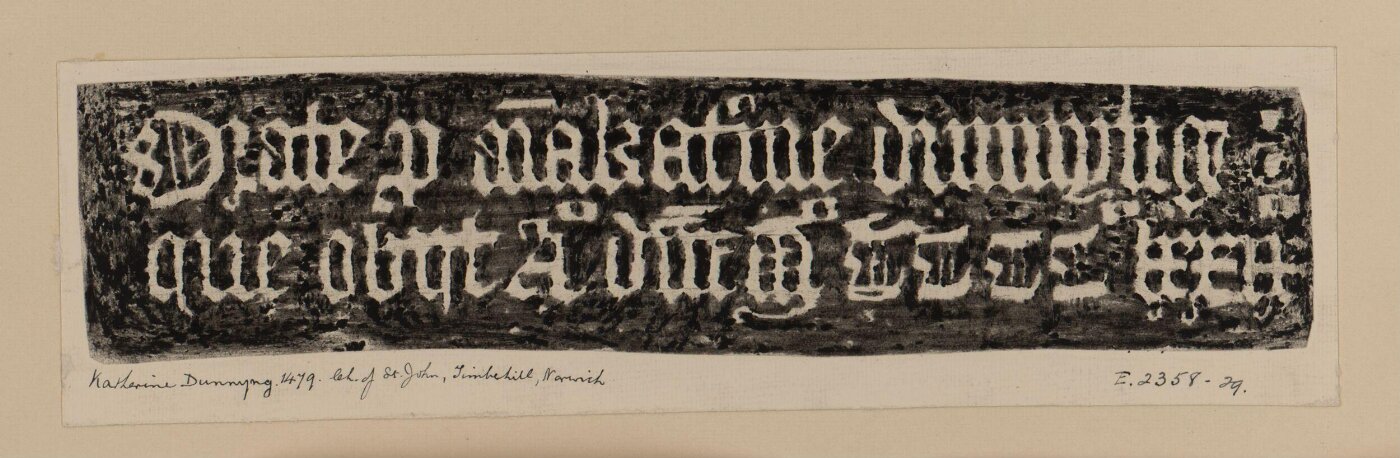 Orate p aīa katine dunnyng
que obijt Aº dñi mº CCCC lxxix
Katherine Dunnyng. 1479. Ch. of St. John, Timbehill, Norwich
E.2358-29.